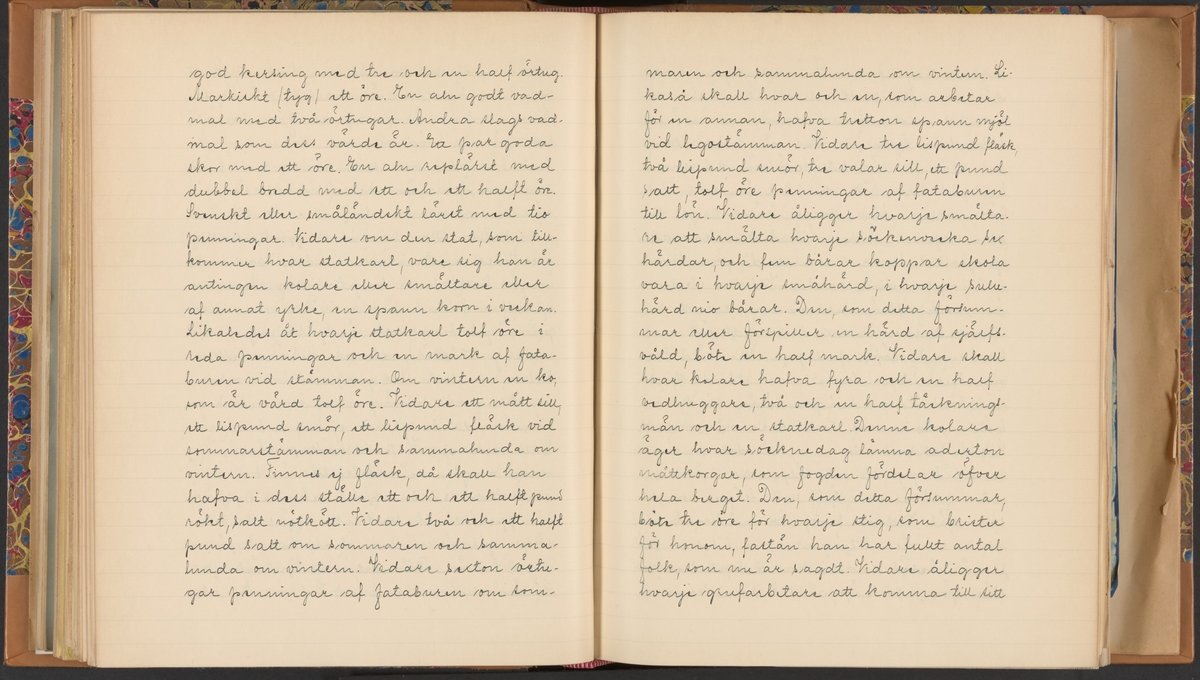 god kersing med tre och en half örtug.
Markiskt (tyg) ett öre. En aln godt vad-
mal med två örtugar. Andra slags vad-
mal som dess värde är. Ett par goda
skor med ett öre. En aln replärft med
dubbel bredd med ett och ett halft öre.
Svenskt eller småländskt lärft med tio
penningar. Vidare om den stat, som till-
kommer hvar statkarl, vare sig han är
antingen kolare eller smältare eller
af annat yrke, en spann korn i veckan.
Likaledes åt hvarje statkarl tolf öre i
reda penningar och en mark af fata-
buren vid stämman. Om vintern en ko,
som är värd tolf öre. Vidare ett mått sill,
ett lispund smör, ett lispund fläsk vid
sommarstämman och sammalunda om
vintern. Finnes ej fläsk, då skall han
hafva i dess ställe ett och ett halft pund
rökt, salt nötkött. Vidare två och ett halft
pund salt om sommaren och samma-
lunda om vintern. Vidare sexton örtu-
gar penningar af fataburen om som-
maren och sammalunda om vintern. Li-
kaså skall hvar och en, som arbetar
för en annan, hafva tretton spann mjöl
vid legostämman. Vidare tre lispund fläsk,
två lispund smör, tre valar sill, ett pund
salt, tolf öre penningar af fataburen
till lön. Vidare åligger hvarje smälta-
re att smälta hvarje söckenvecka sex
härdar, och fem bårar koppar skola
vara i hvarje småhärd, i hvarje sulu-
härd nio bårar. Den, som detta försum-
mar eller förspiller en härd af sjelfs-
våld, böte en half mark. Vidare skall
hvar kolare hafva fyra och en half
vedhuggare, två och en half täcknings-
män och en statkarl. Denne kolare
äger hvar söcknedag lämna aderton
måttkorgar, som fogden fördelar öfver
hela berget. Den, som detta försummar,
böte tre öre för hvarje stig, som brister
för honom, fastän han har fullt antal
folk, som nu är sagdt. Vidare åligger
hvarje grufarbetare att komma till sitt